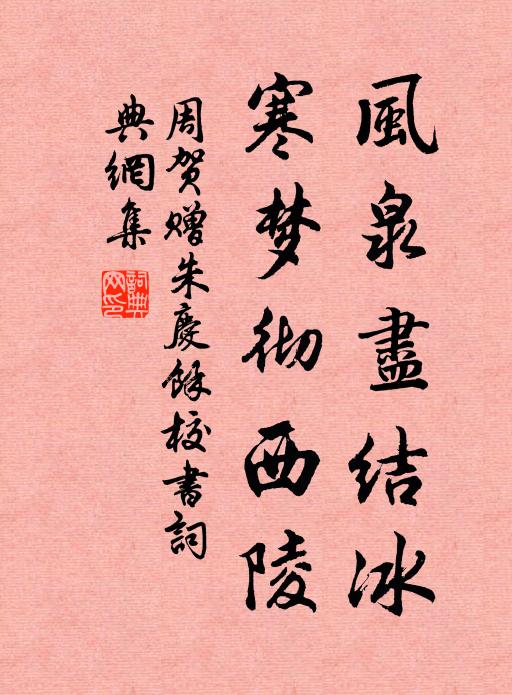 風泉盡结冰
寒梦彻西陵
周贺赠朱慶餘校書詞
典網集
詞典
网印